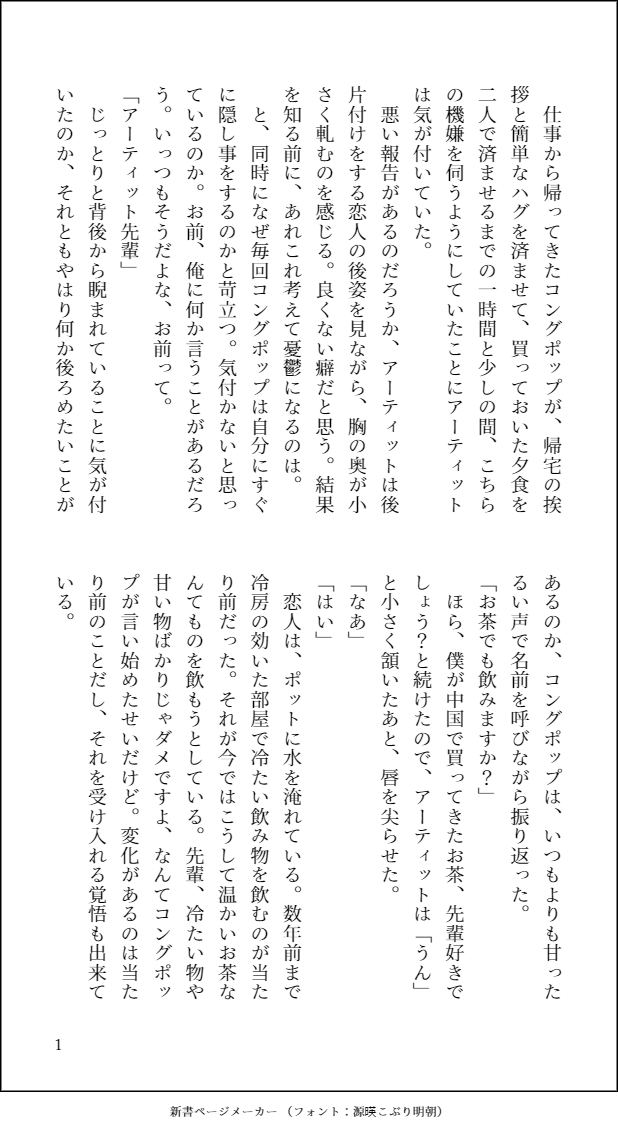 仕事から帰ってきたコングポップが、帰宅の挨
拶と簡単なハグを済ませて、買っておいた夕食を
二人で済ませるまでの一時間と少しの間、こちら
の機嫌を伺うようにしていたことにアーティット
は気が付いていた。
　悪い報告があるのだろうか、アーティットは後
片付けをする恋人の後姿を見ながら、胸の奥が小
さく軋むのを感じる。良くない癖だと思う。結果
を知る前に、あれこれ考えて憂鬱になるのは。
　と、同時になぜ毎回コングポップは自分にすぐ
に隠し事をするのかと苛立つ。気付かないと思っ
ているのか。お前、俺に何か言うことがあるだろ
う。いっつもそうだよな、お前って。
「アーティット先輩」
　じっとりと背後から睨まれていることに気が付
いたのか、それともやはり何か後ろめたいことが
あるのか、コングポップは、いつもよりも甘った
るい声で名前を呼びながら振り返った。
「お茶でも飲みますか？」
　ほら、僕が中国で買ってきたお茶、先輩好きで
しょう？と続けたので、アーティットは「うん」
と小さく頷いたあと、唇を尖らせた。
「なあ」
「はい」
　恋人は、ポットに水を淹れている。数年前まで
冷房の効いた部屋で冷たい飲み物を飲むのが当た
り前だった。それが今ではこうして温かいお茶な
んてものを飲もうとしている。先輩、冷たい物や
甘い物ばかりじゃダメですよ、なんてコングポッ
プが言い始めたせいだけど。変化があるのは当た
り前のことだし、それを受け入れる覚悟も出来て
いる。
1
新書ページメーカー（フォント：源暎こぶり明朝）